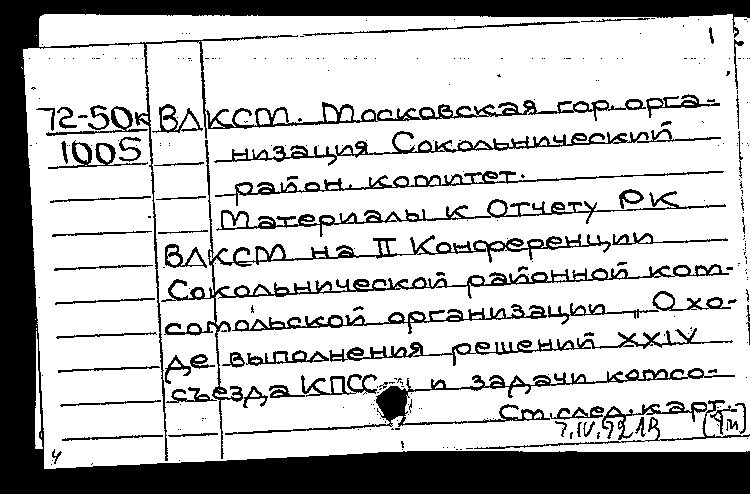 1
72-50к ВЛКСМ. Московская гор. орга-
1005 низация Сокольнический
район. комитет.
Материалы к Отчету РК
ВЛКСМ на II Конференции
Сокольнической районной ком-
сомольской организации „О хо-
де выполнения решений XXIV
съезда КПСС и задачи комсо-
См. след. карт.
7.IV.72